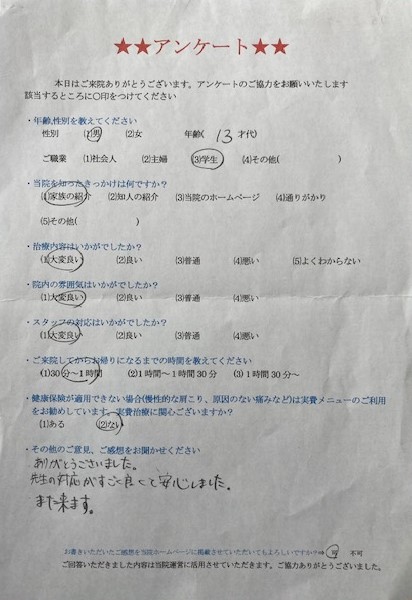 ★★アンケート★★
本日はご来院ありがとうございます。アンケートのご協力をお願いいたします
該当するところに〇印をつけてください
・年齢,性別を教えてください
性別 (1)男 (2)女 年齢( 13 才代)
ご職業 (1)社会人 (2)主婦 (3)学生 (4)その他( )
・当院を知ったきっかけは何ですか?
(1)家族の紹介 (2)知人の紹介 (3)当院のホームページ (4)通りがかり
(5)その他( )
・治療内容はいかがでしたか?
(1)大変良い (2)良い (3)普通 (4)悪い (5)よくわからない
・院内の雰囲気はいかがでしたか?
(1)大変良い (2)良い (3)普通 (4)悪い
・スタッフの対応はいかがでしたか?
(1)大変良い (2)良い (3)普通 (4)悪い
・ご来院してからお帰りになるまでの時間を教えてください
(1)30分〜1時間 (2)1時間〜1時間30分 (3)1時間30分〜
・健康保険が適用できない場合(慢性的な肩こり、原因のない痛みなど)は実費メニューのご利用
をお勧めしています。実費治療に関心ございますか?
(1)ある (2)ない
・その他のご意見、ご感想をお聞かせください
ありがとうございました。
先生の対応がすごく良くて安心しました。
また来ます。
お書きいただいたご感想を当院ホームページに掲載させていただいてもよろしいですか?⇒ 可 不可
ご回答いただきました内容は当院運営に活用させていただきます。ご協力ありがとうございました。